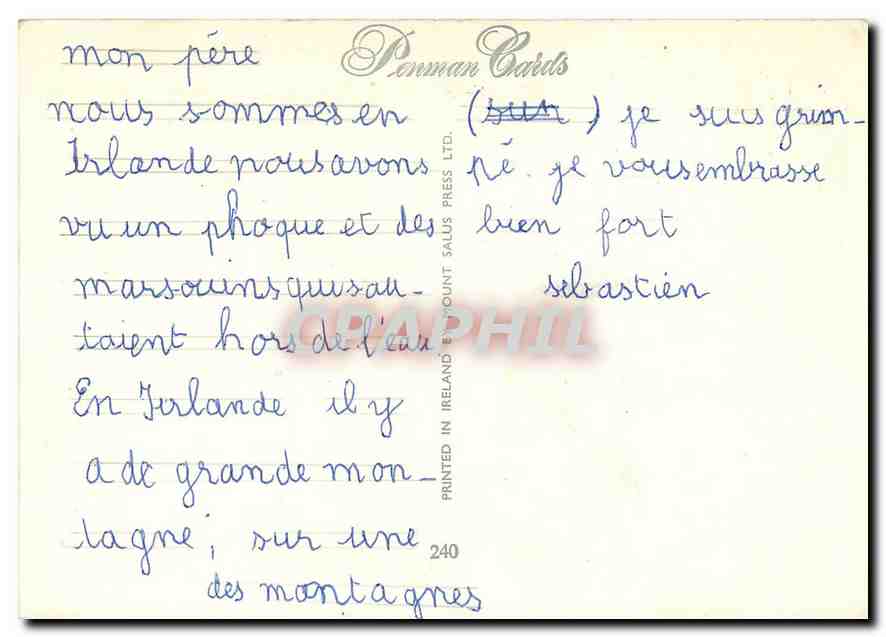 Penman Cards
mon père
nous sommes en
Irlande nous avons
vu un phoque et des
marsouins qui sau-
taient hors de l'eau
En Irlande il y
a de grande mon-
tagne, sur une
des montagnes
(sur) je suis grim-
pé. je vous embrasse
bien fort
sebastien
PRINTED IN IRELAND BY MOUNT SALUS PRESS LTD.
240
CPAPHIL